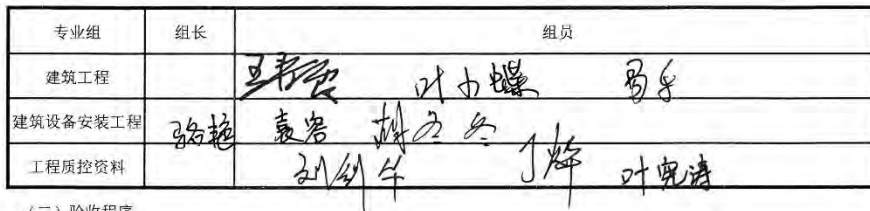 专业组 组长 组员
建筑工程 叶小蝶
建筑设备安装工程 骆艳 袁容 胡冬冬
工程质控资料 刘剑华 丁烨 叶宪涛
(二)验收程序